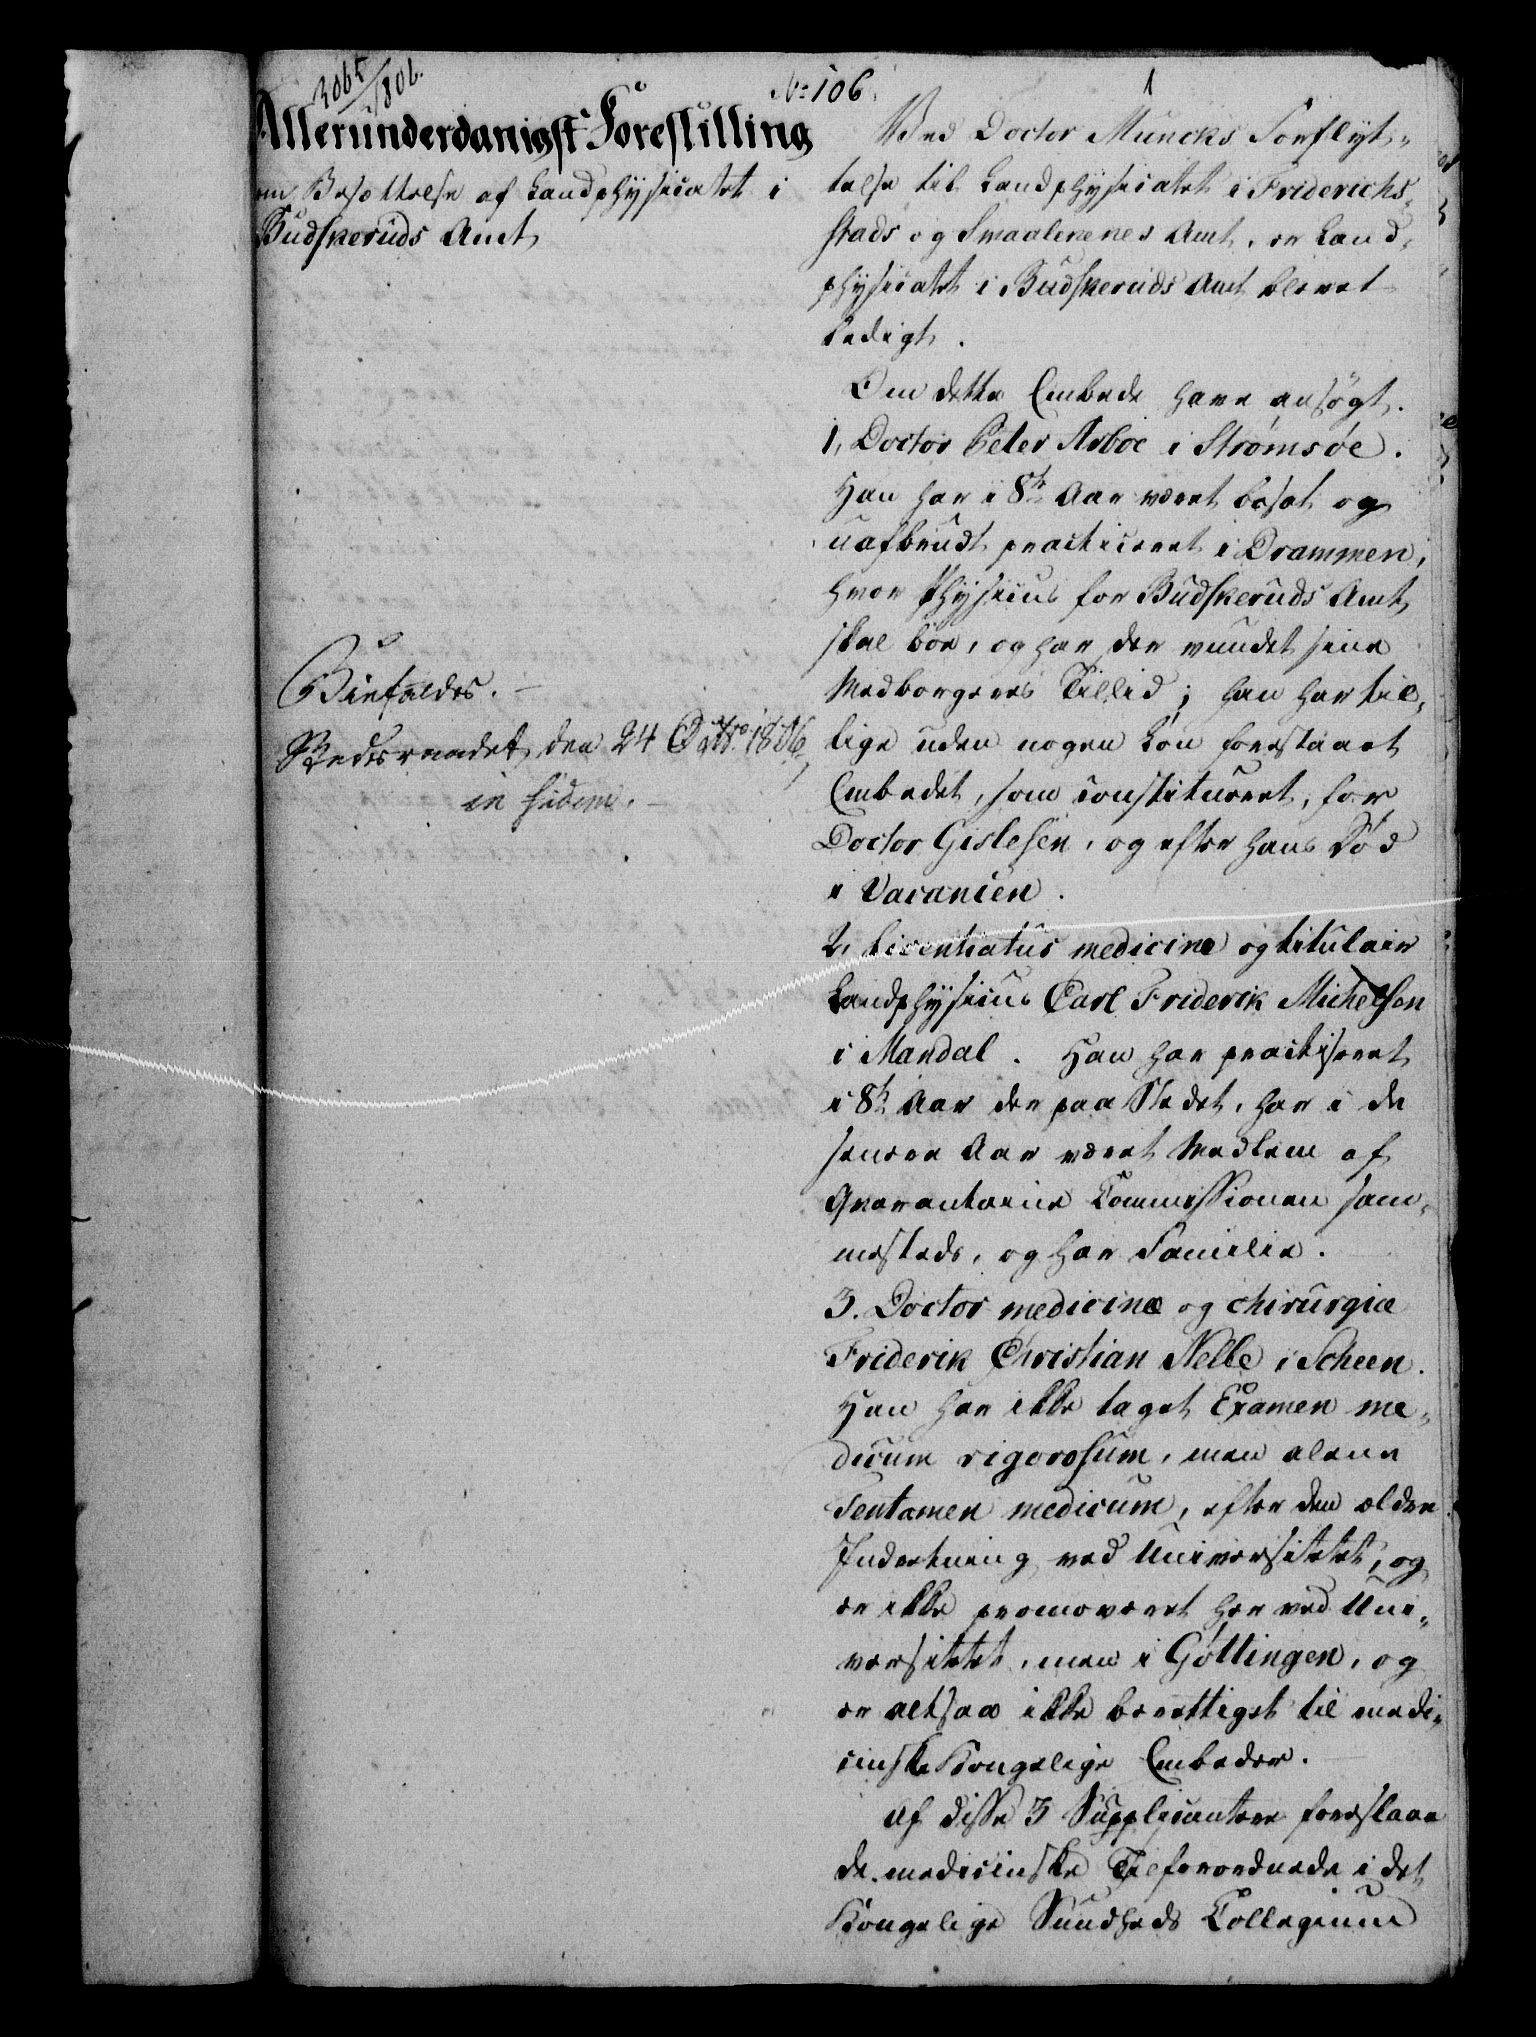 3065/1806.
No 106.
1
Allerunderdanigst Forestilling
om Besættelse af Landphysicatet i
Budskeruds Amt
Bifaldes. -
Statsraadet den 24 Octbr. 1806
in fidem. -
Ved Doctor Muncks Forflyt-
telse til Landphysicatet i Friderichs-
stads og Smaalenenes Amt, er Land-
physicatet i Budskeruds Amt blevet
ledigt.
Om dette Embede have ansøgt.
1, Doctor Peter Arboe i Strømsøe.
Han har i 8te Aar været bosat og
uafbrudt practiceret i Drammen,
hvor Physicus for Budskeruds Amt
skal boe, og har der vundet sine
Medborgeres Tillid; han har til-
lige uden nogen Løn forestaaet
Embedet, som constitueret, for
Doctor Gislesen, og efter hans Død
i Vacancen.
2, Licentiatus medicinæ og titulair
Landphysicus Carl Friderik Michelsen
i Mandal. Han har practiseret
i 8te Aar der paa Stedet, har i de
senere Aar været Medlem af
Qvarantaine Commissionen sam-
mesteds, og har Familie.
3. Doctor medicinæ og chirurgiæ
Friderik Christian Nelle i Scheen.
Han har ikke taget Examen me-
dicum rigorosum, men alene
Tentamen medicum, efter den ældre
Indretning ved Universitetet, og
er ikke promoveret her ved Uni-
versitetet, men i Gøttingen, og
er altsaa ikke berettiget til medi-
cinske Kongelige Embeder.
Af disse 3 Supplicantere foreslaae
de medicinske Tilforordnede i det
Kongelige Sundheds Collegium